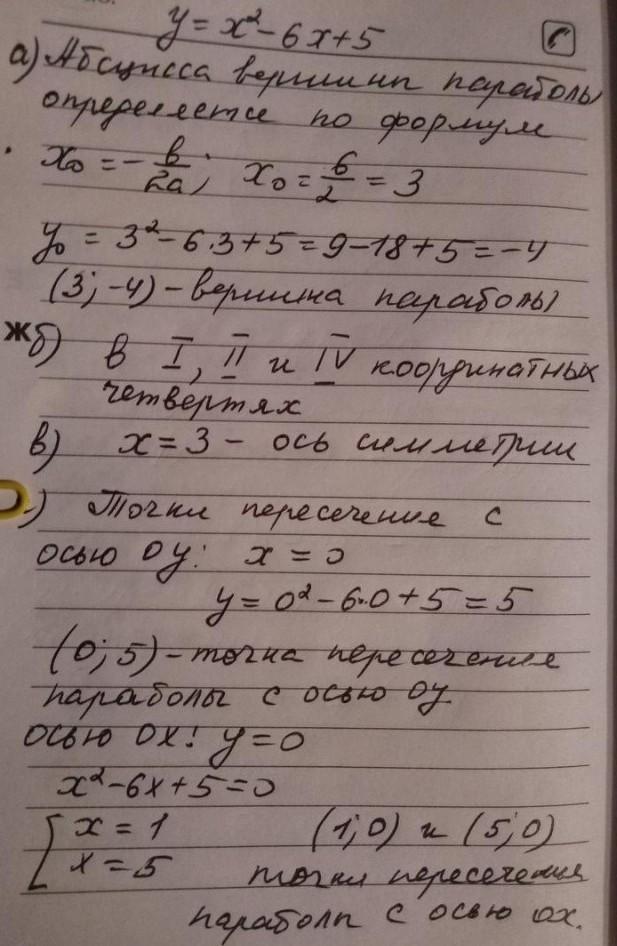 y = x² - 6x + 5
а) Абсцисса вершин параболы
определяется по формуле
x₀ = - b/2a; x₀ = 6/2 = 3
y₀ = 3² - 6·3 + 5 = 9 - 18 + 5 = -4
(3; -4) - вершина параболы
Ж б) в I, II и IV координатных
четвертях
в) x = 3 - ось симметрии
) Точки пересечение с
осью Oy: x = 0
y = 0² - 6·0 + 5 = 5
(0; 5) - точка пересечения
параболы с осью Oy
осью Ox: y = 0
x² - 6x + 5 = 0
[ x = 1 (1; 0) и (5; 0)
x = 5 точки пересечения
параболы с осью Ox.